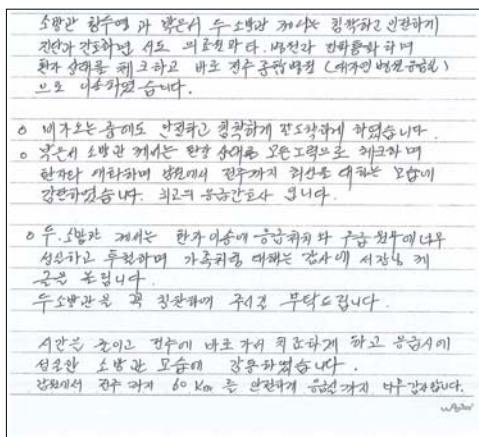 소방관 황수영 과 박은서 두소방관 께서는 침착하고 안전하게
진단과 간호하면서도 의료원과 다. 병원과 전화통화 하며
환자 상태를 체크하고 바로 전주 종합병원 (대자인 병원 응급실)
으로 이송하였습니다.
○ 비가오는 중에도 안전하고 침착하게 잘도착하게 하였습니다.
○ 박은서 소방관 께서는 환장 상태를 모든 노력으로 체크하며
환자와 대화하며 남원에서 전주까지 최선을 대하는 모습에
감탄하였습니다. 최고의 응급간호사 입니다.
○ 두.소방관 께서는 환자이송에 응급처치와 구급 업무에 너무
성실하고 투철하며 가족처럼 대해는 감사에 서장님 께
글을 올립니다.
두소방관을 꼭 칭찬하여 주시길 부탁드립니다.
시간을 줄이고 전주에 바로가서 치료하게 하고 응급시에
성실한 소방관 모습에 감동하였습니다.
남원에서 전주 까지 60 Km 를 안전하게 응급실까지 너무 감사합니다.